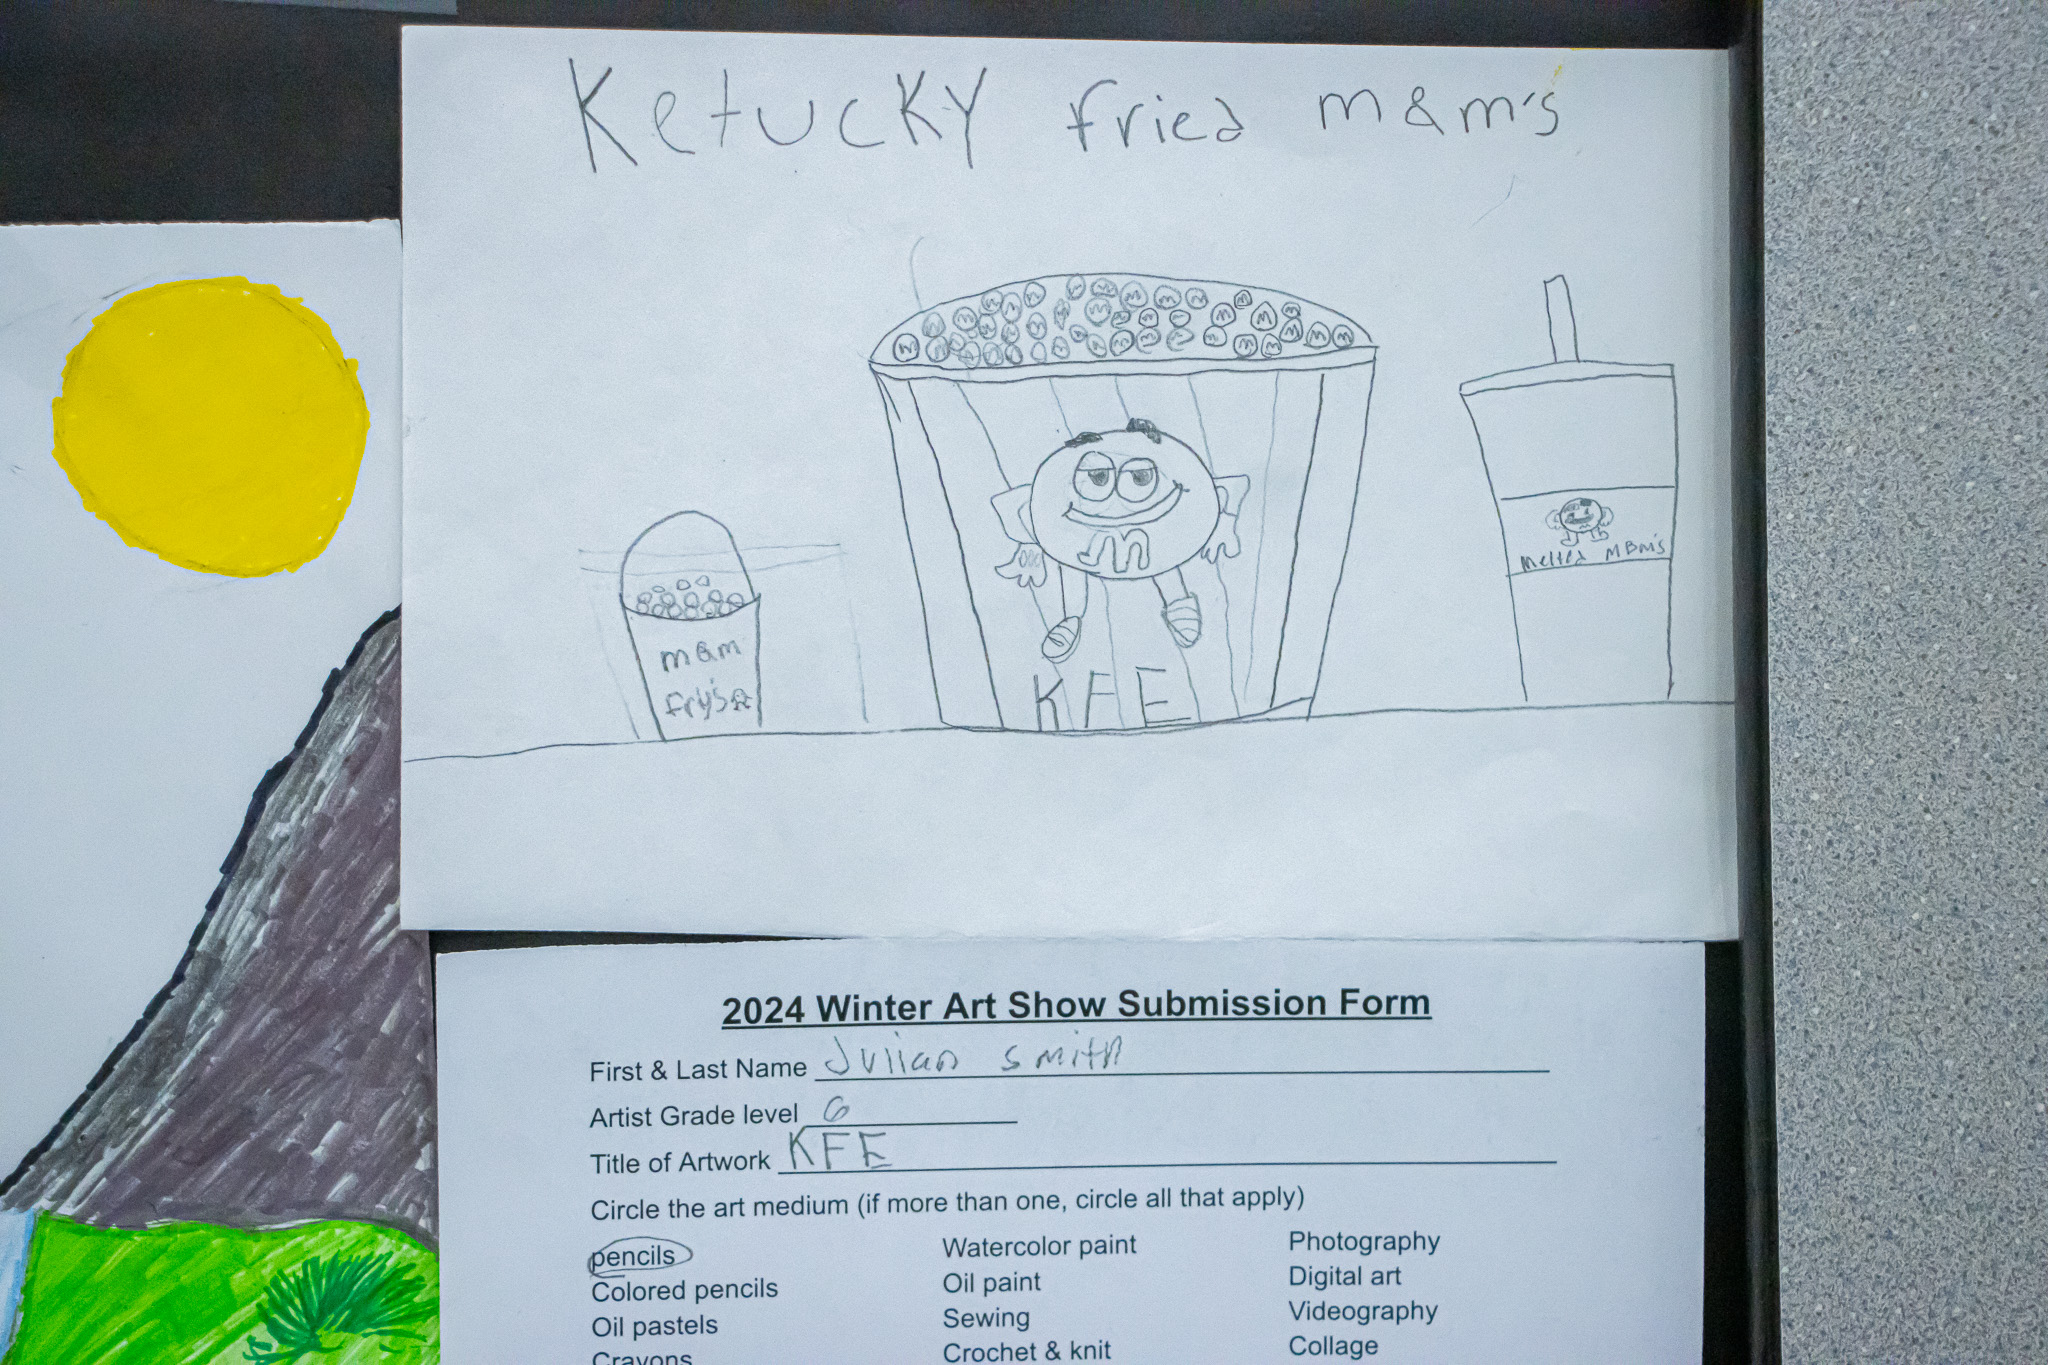 Ketucky fried m&m's
m&m
fry's
KFE
Melted M&M's
2024 Winter Art Show Submission Form
First & Last Name Julian Smith
Artist Grade level 6
Title of Artwork KFE
Circle the art medium (if more than one, circle all that apply)
pencils Watercolor paint Photography
Colored pencils Oil paint Digital art
Oil pastels Sewing Videography
Crayons Crochet & knit Collage